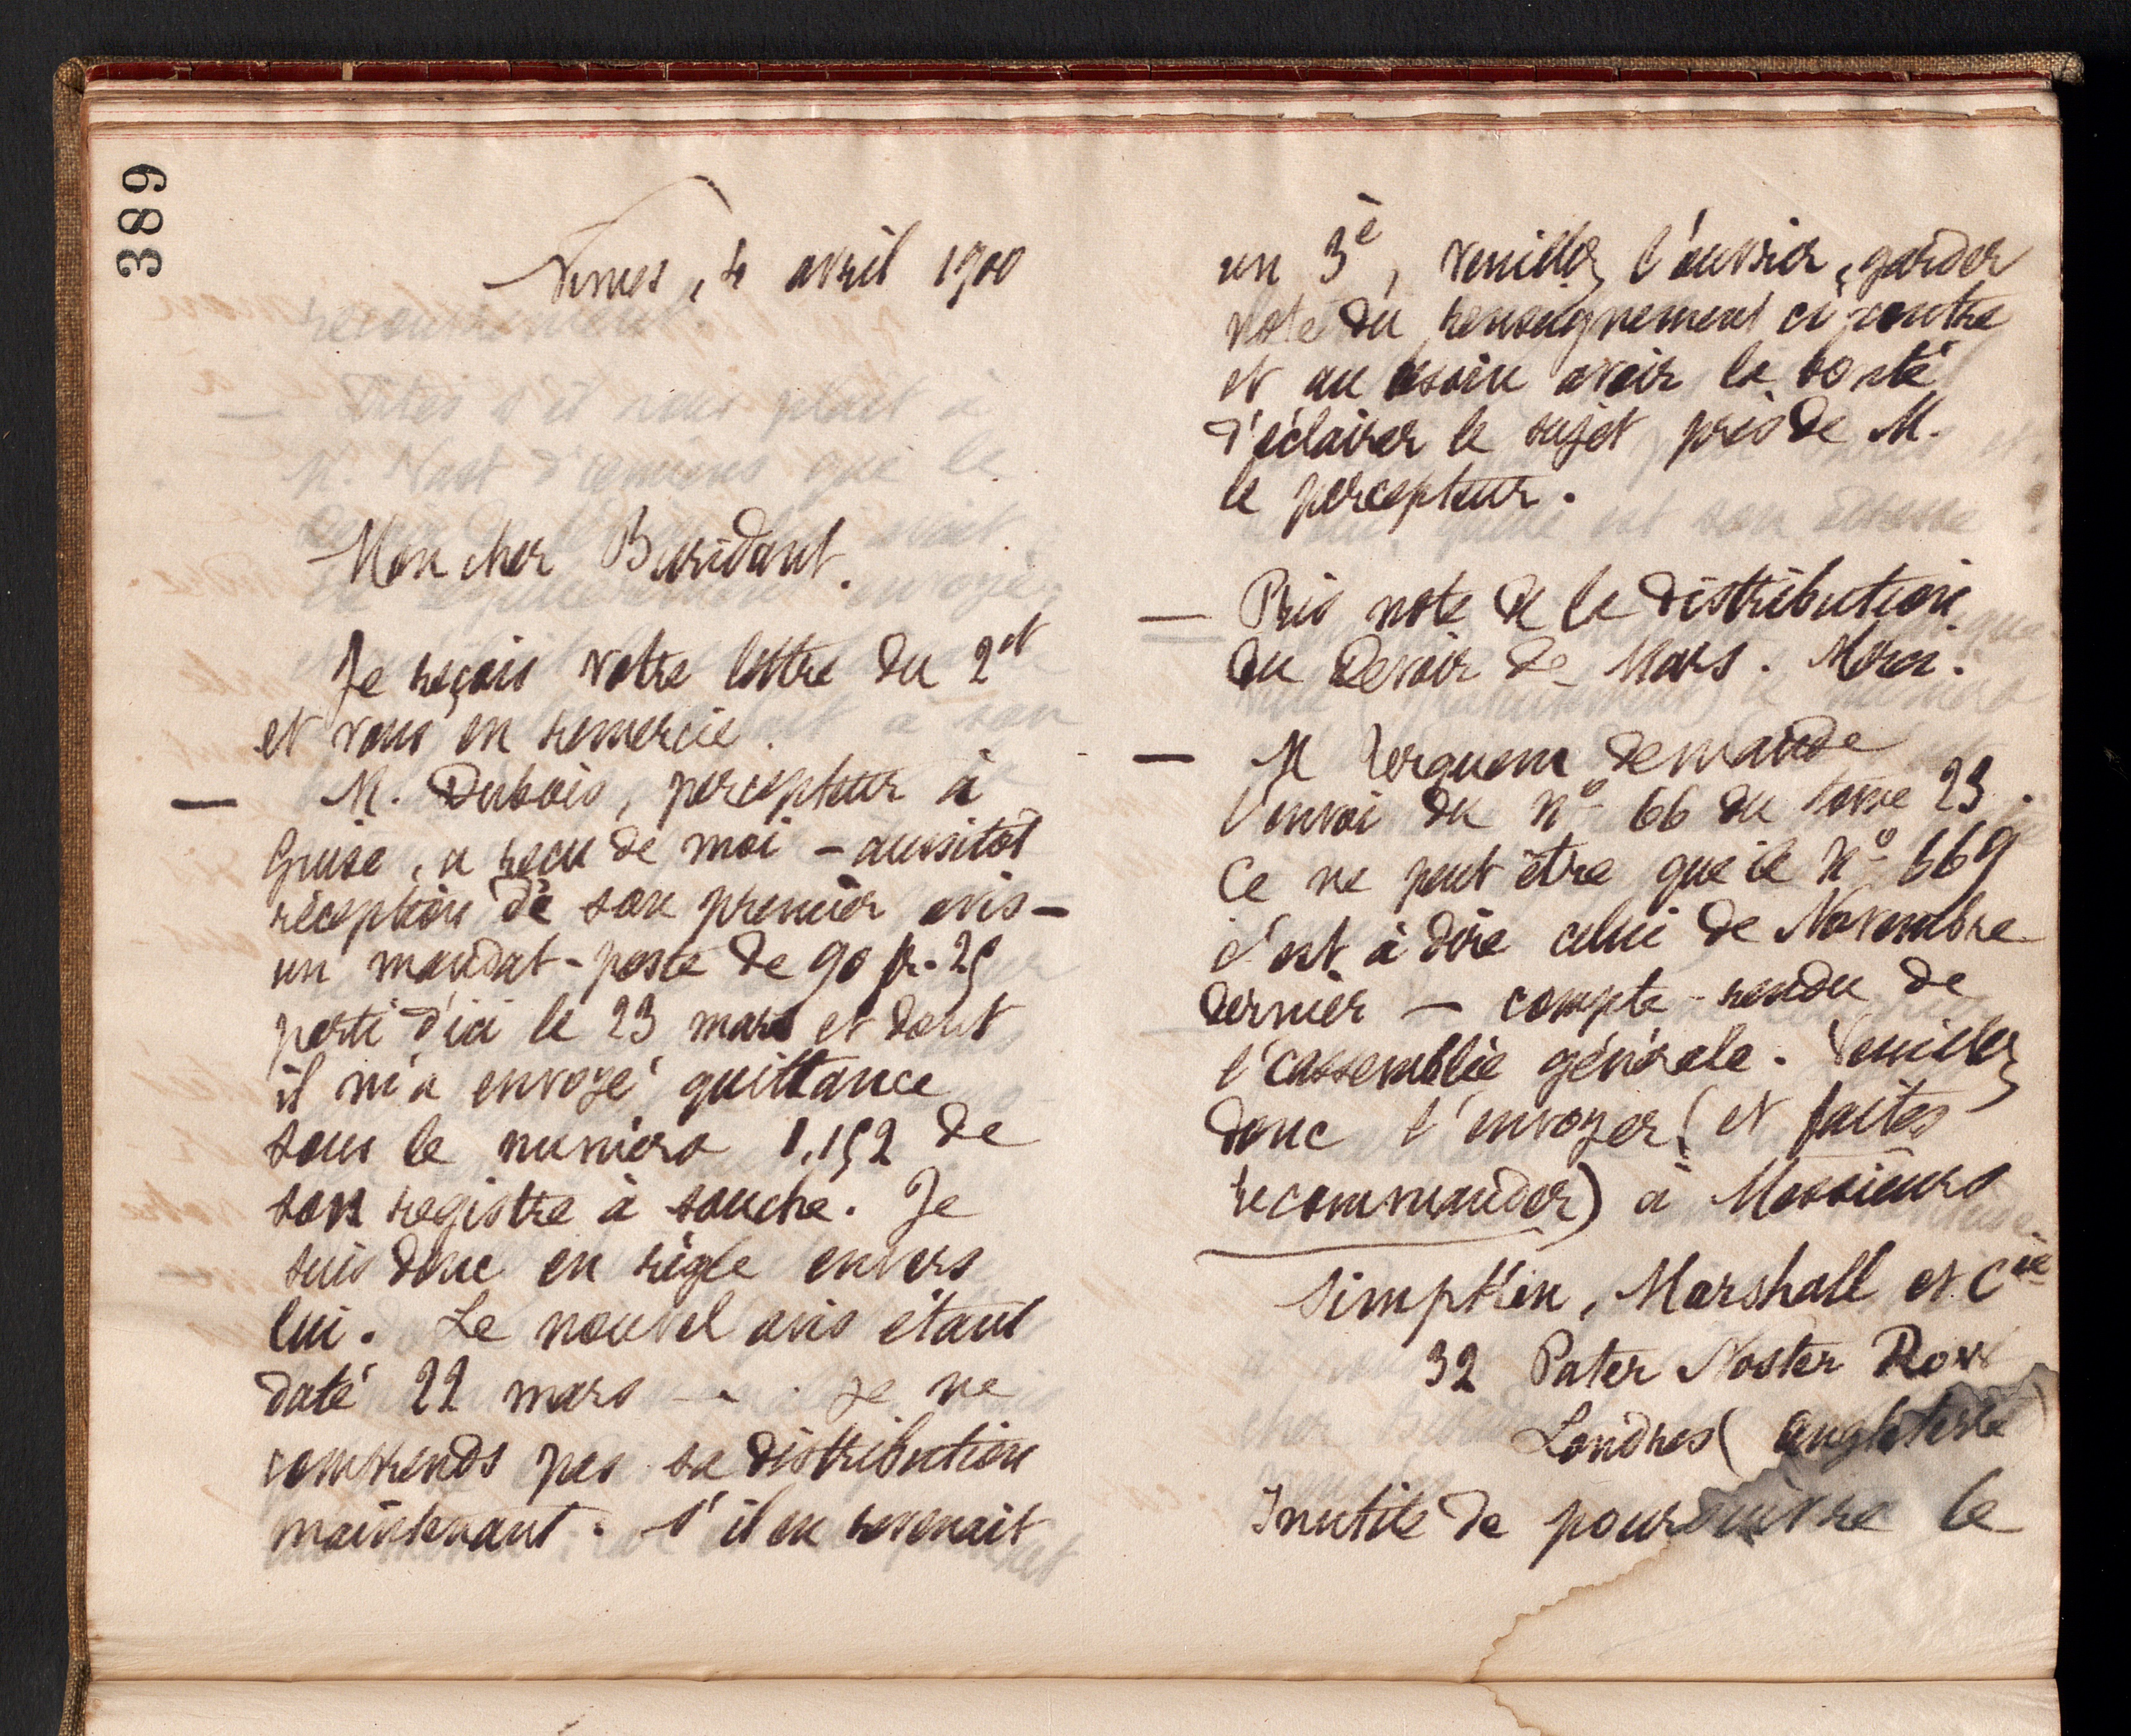 389
Nimes, 4 avril 1900
Mon cher Buridant.
Je reçois votre lettre du 2 et
et vous en remercie.
— M. Dubois, percepteur à
Guise, a reçu de moi – aussitôt
réception de son premier avis –
un mandat-poste de 90 fr. 25
parti d'ici le 23 mars et dont
il m'a envoyé quittance
sous le numéro 1,152 de
son registre à souche. Je
suis donc en règle envers
lui. Le nouvel avis étant
daté 22 mars — . je ne
comprends pas sa distribution
maintenant. S'il en revenait
un 3è, veuillez l'ouvrir, garder
note du renseignement ci contre
et au besoin avoir la bonté
d'éclairer le sujet près de M.
le percepteur.
— Pris note de la distribution
du Devoir de Mars. Merci.
— M demande
l'envoi du nº 66 du tome 23.
Ce ne peut être que le nº 669
c'est à dire celui de Novembre
dernier — compte-rendu de
l'assemblée générale. Veuillez
donc l'envoyer (et faites
recommander) à Messieurs
Simpkin, Marshall et Cie
32 Pater Noster Row
Londres (Angleterre)
Inutile de poursuivre le